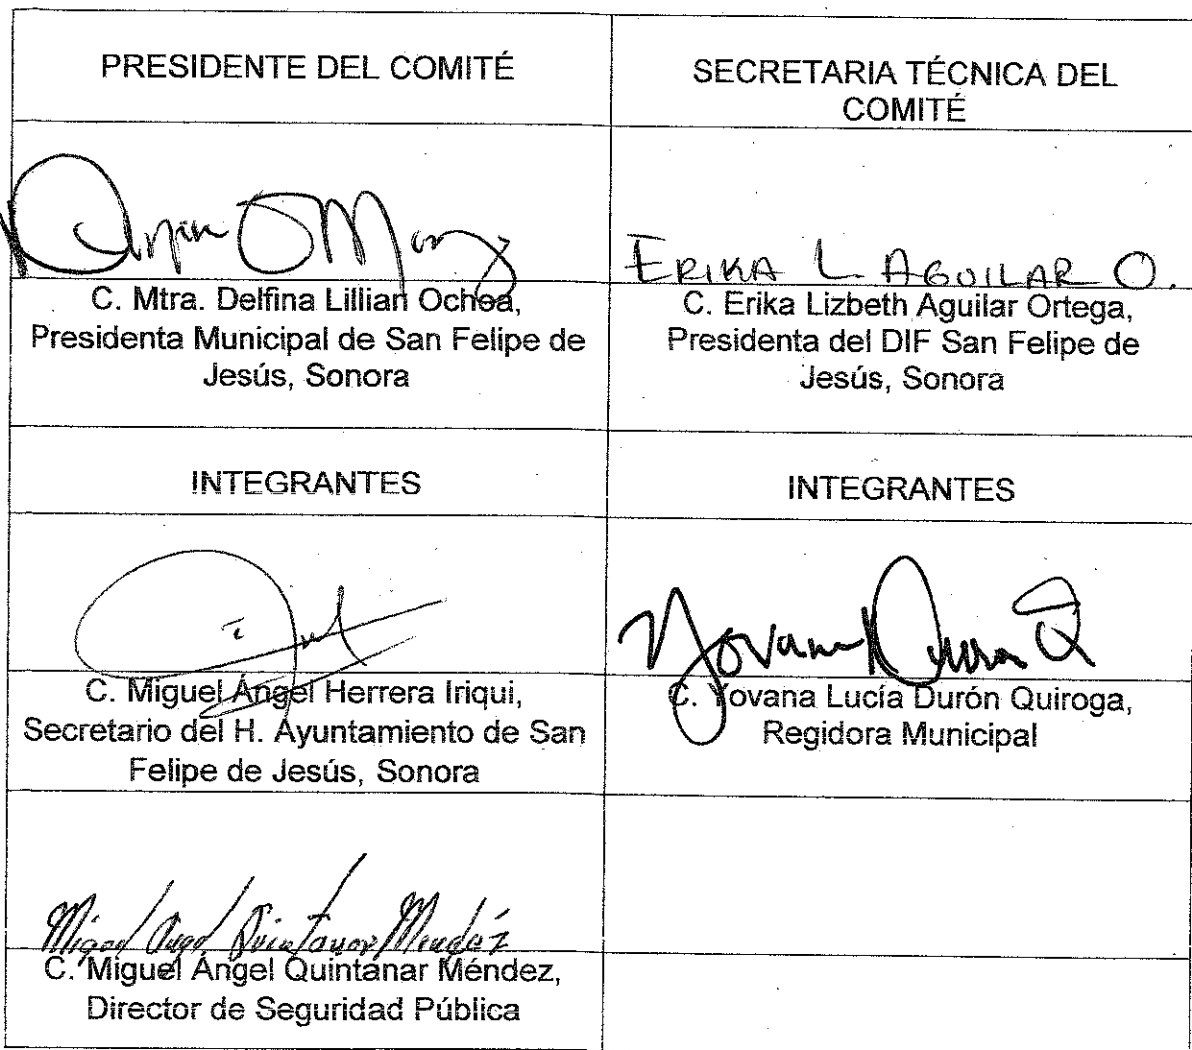 PRESIDENTE DEL COMITÉ
SECRETARIA TÉCNICA DEL
COMITÉ
ERIKA L. AGUILAR O.
C. Mtra. Delfina Lillian Ochoa,
Presidenta Municipal de San Felipe de
Jesús, Sonora
C. Erika Lizbeth Aguilar Ortega,
Presidenta del DIF San Felipe de
Jesús, Sonora
INTEGRANTES
INTEGRANTES
Yovana Duron Q
C. Miguel Ángel Herrera Iriqui,
Secretario del H. Ayuntamiento de San
Felipe de Jesús, Sonora
C. Yovana Lucía Durón Quiroga,
Regidora Municipal
Miguel Angel Quintanar Mendéz
C. Miguel Ángel Quintanar Méndez,
Director de Seguridad Pública